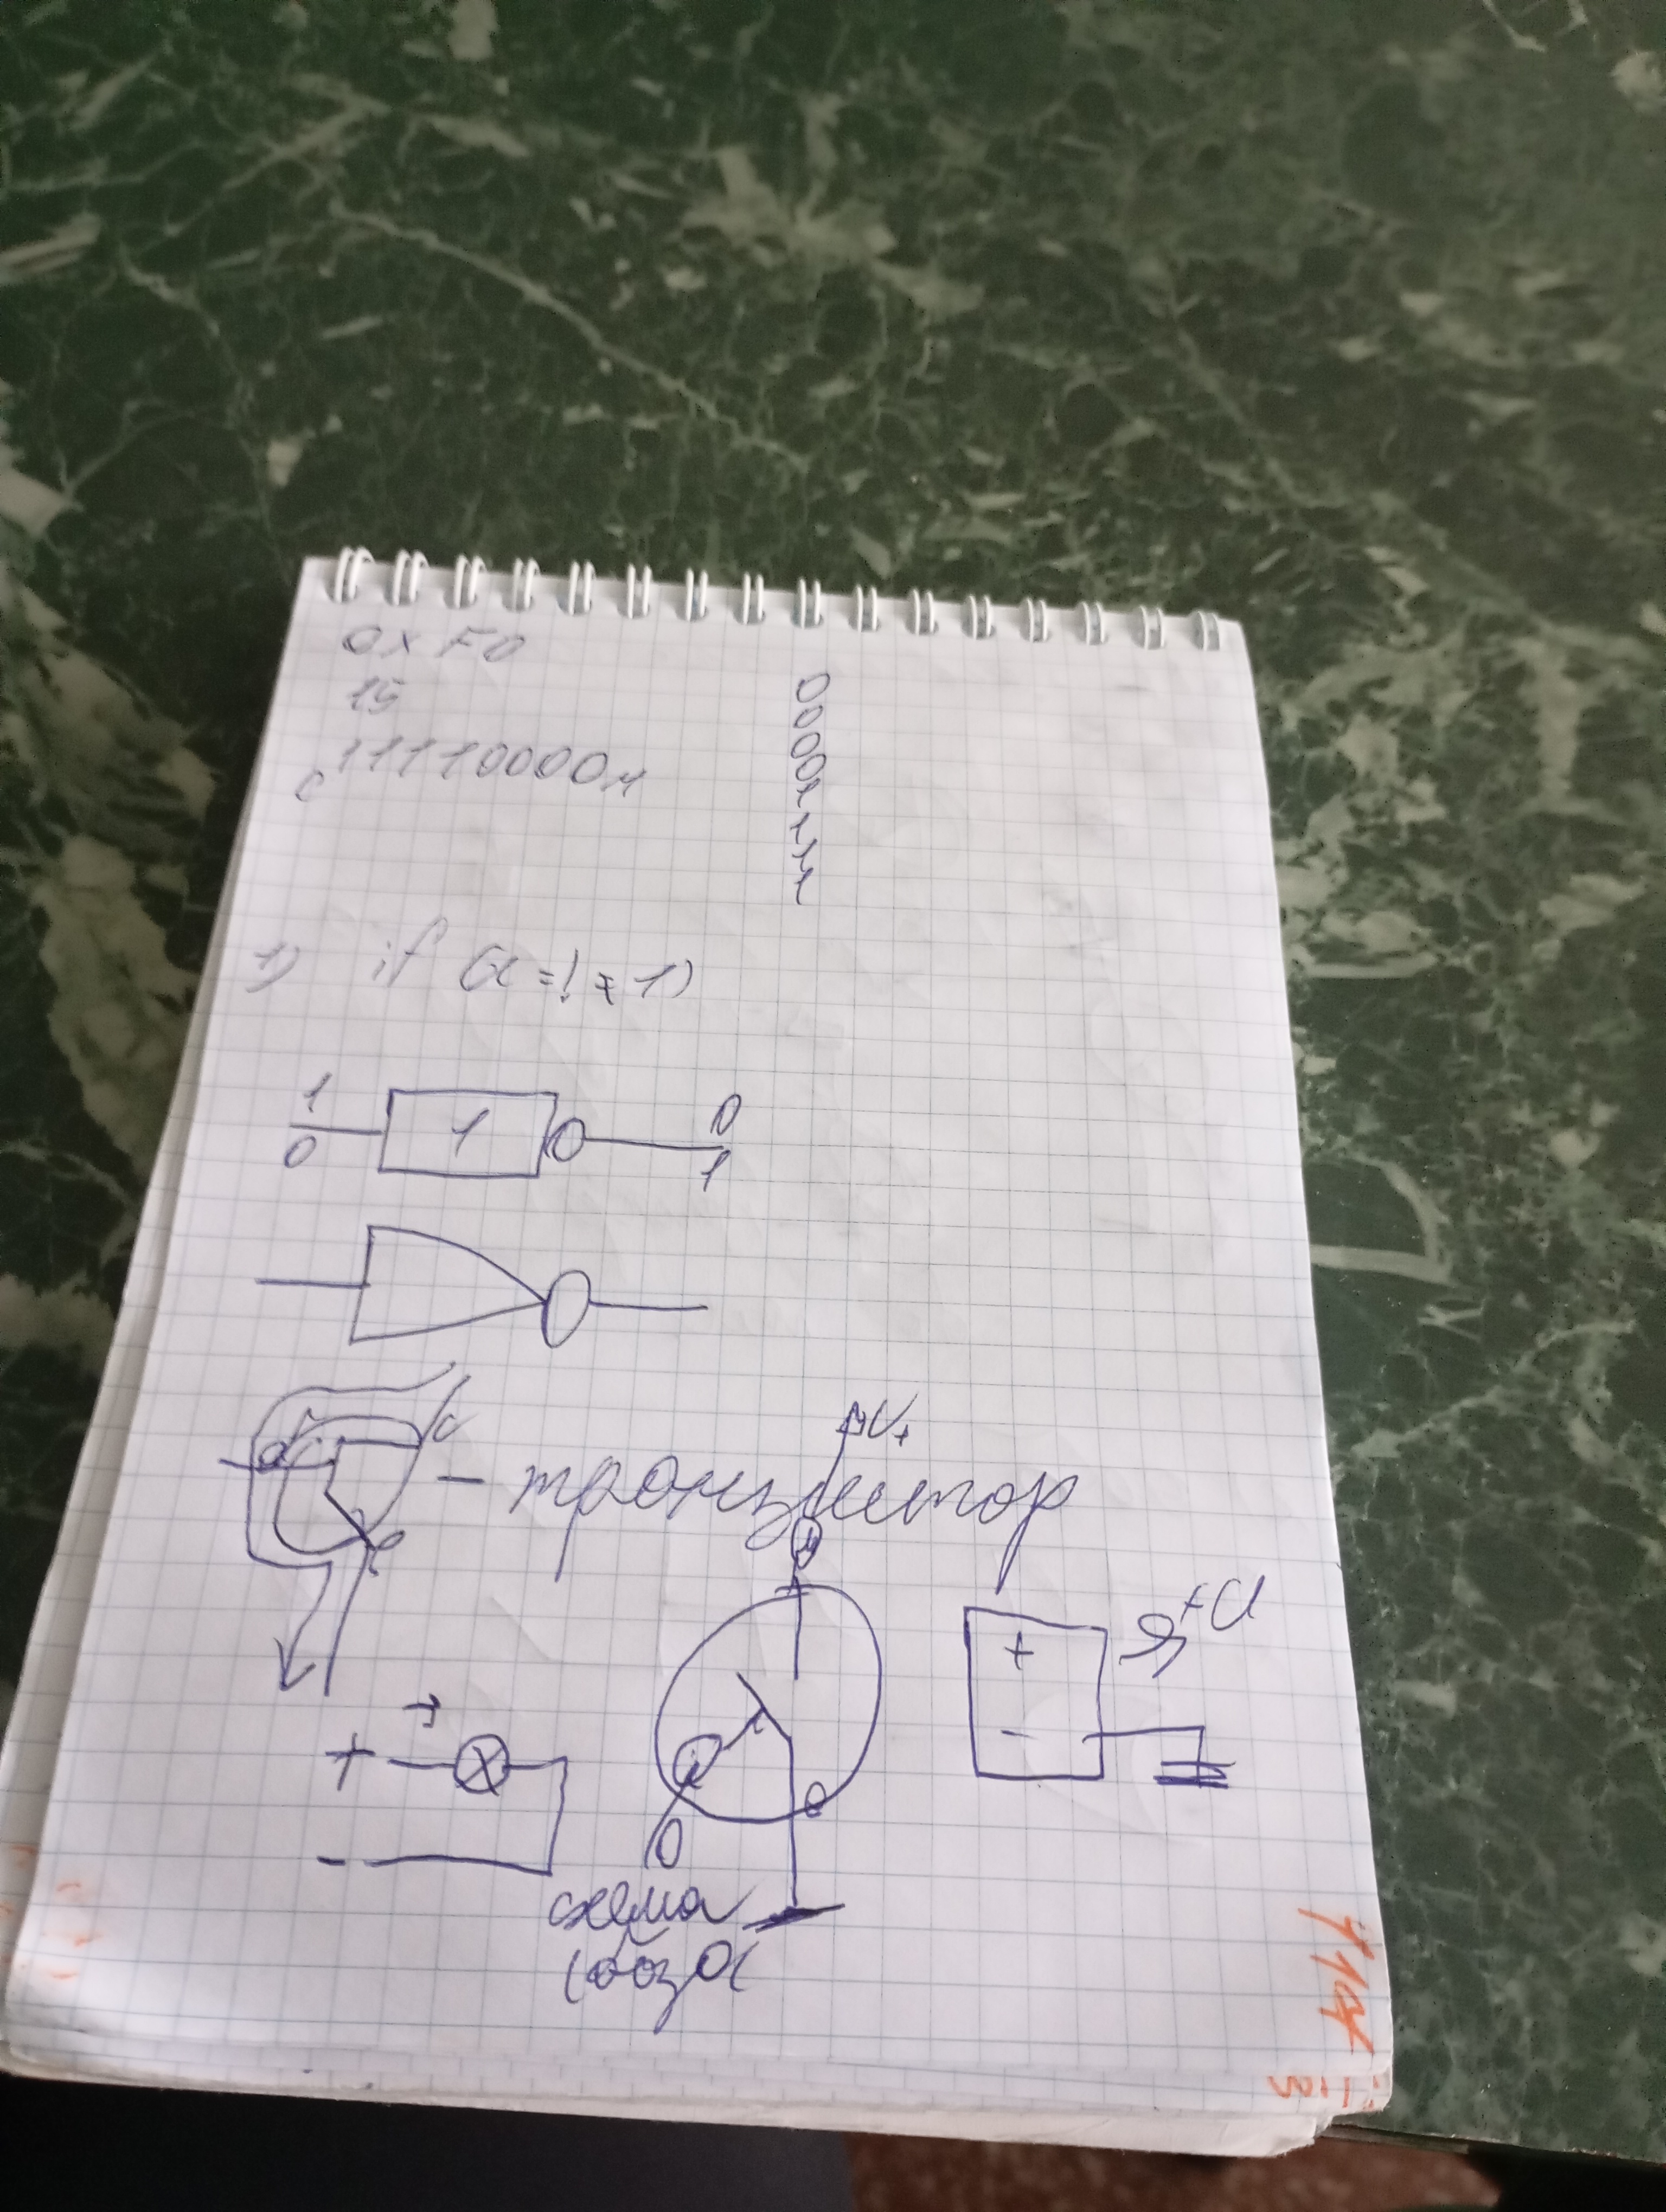 0xF0
15
11110000
0
0
0
0
1
1
1
1
1) if (
1
0
1
0
1
- транзистор
U+
+
-
+U
+
-
0
схема
база